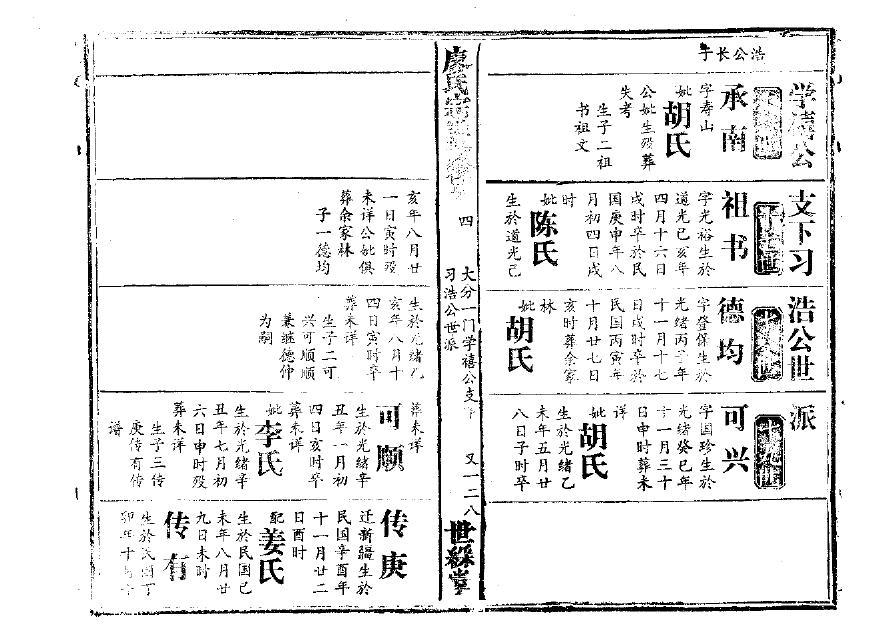 学禧公
支下习
浩公世
派
浩公长子
承南
字寿山
妣
胡氏
公妣生殁葬
失考
生子二祖
书祖文
祖书
字光裕生於
道光己亥年
四月十六日
戌时卒於民
国庚申年八
月初四日戌
时
妣
陈氏
生於道光己
亥年八月廿
一日寅时殁
未详公妣俱
葬余家林
子一德均
德均
字登保生於
光绪丙子年
十一月十七
日戌时卒於
民国丙寅年
十月廿七日
亥时葬余家
林
妣
胡氏
生於光绪乙
亥年八月十
四日寅时卒
葬未详
生子二可
兴可顺顺
兼继德仲
为嗣
可兴
字国珍生於
光绪癸巳年
十一月三十
日申时葬未
详
妣
胡氏
生於光绪乙
未年五月廿
八日子时卒
葬未详
可顺
生於光绪辛
丑年一月初
四日亥时卒
葬未详
妣
李氏
生於光绪辛
丑年七月初
六日申时殁
葬未详
生子三传
庚传有传
谱
传庚
迁新疆生於
民国辛酉年
十一月廿二
日酉时
配
姜氏
生於民国己
未年八月廿
九日未时
传有
生於民国丁
卯年十
廖氏
四
大分一门学禧公支下
习浩公世派
又一二八
世䌽堂